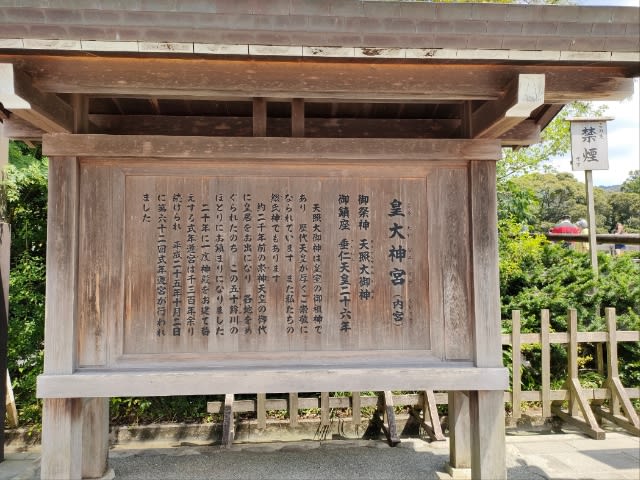 皇大神宮（内宮）
御祭神　天照大御神
御鎮座　垂仁天皇二十六年
天照大御神は皇室の御祖神で
あり　歴代天皇が厚くご崇敬に
なられています　また私たちの
総氏神でもあります
約二千年前の崇神天皇の御代
に皇居をお出になり　各地をめ
ぐられたのち　この五十鈴川の
ほとりにお鎮まりになりました
二十年に一度神殿をお建て替
えする式年遷宮は千三百年余り
続けられ　平成二十五年十月二日
に第六十二回式年遷宮が行われ
ました
禁煙